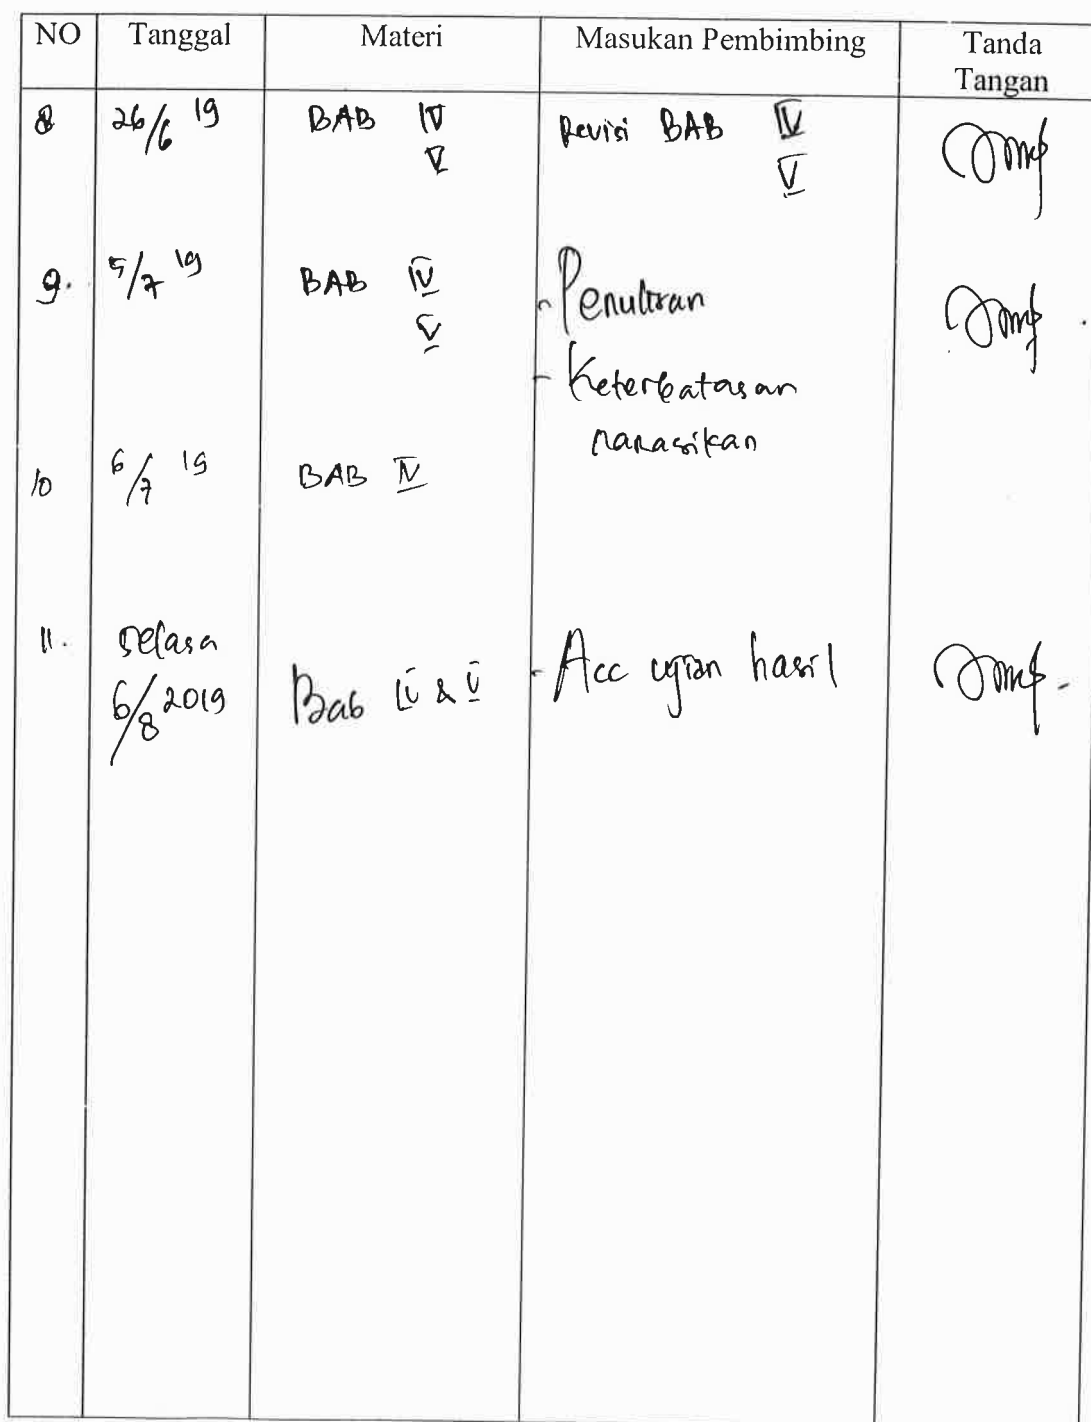 NO Tanggal Materi Masukan Pembimbing Tanda
Tangan
8 26/6 19 BAB IV Revisi BAB IV
V V
9. 5/7 19 BAB IV - Penulisan
V
- Keterbatasan
narasikan
10 6/7 19 BAB IV
11. Selasa
6/8 2019 Bab IV & V - Acc ujian hasil